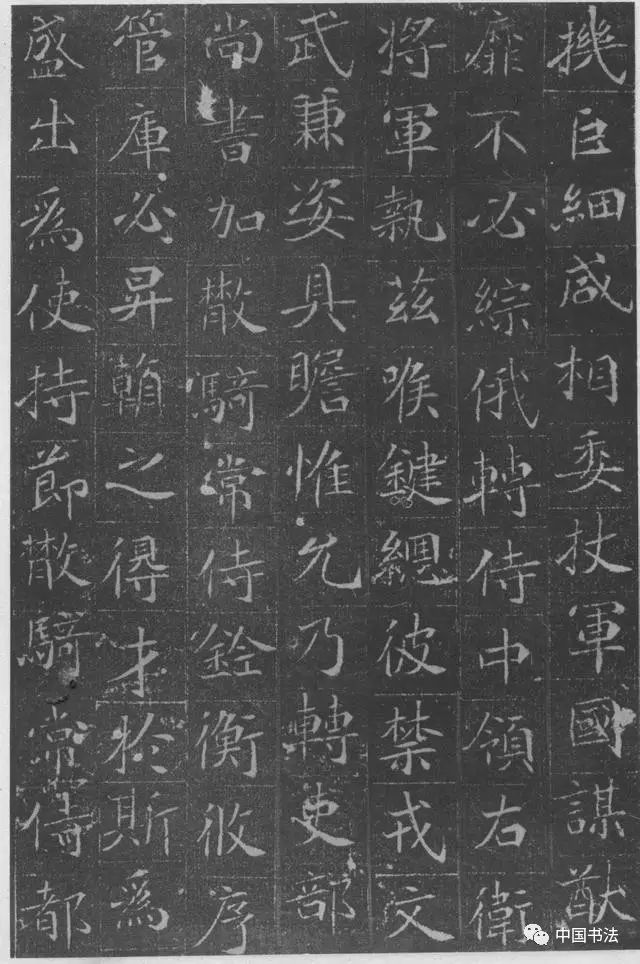 機巨細咸相委杖軍國謀猷
靡不必綜俄轉侍中領右衛
將軍執茲喉鍵總彼禁戎文
武兼姿具瞻惟允乃轉吏部
尚書加散騎常侍銓衡攸序
管庫必昇賴之得才於斯爲
盛出爲使持節散騎常侍都
中国书法